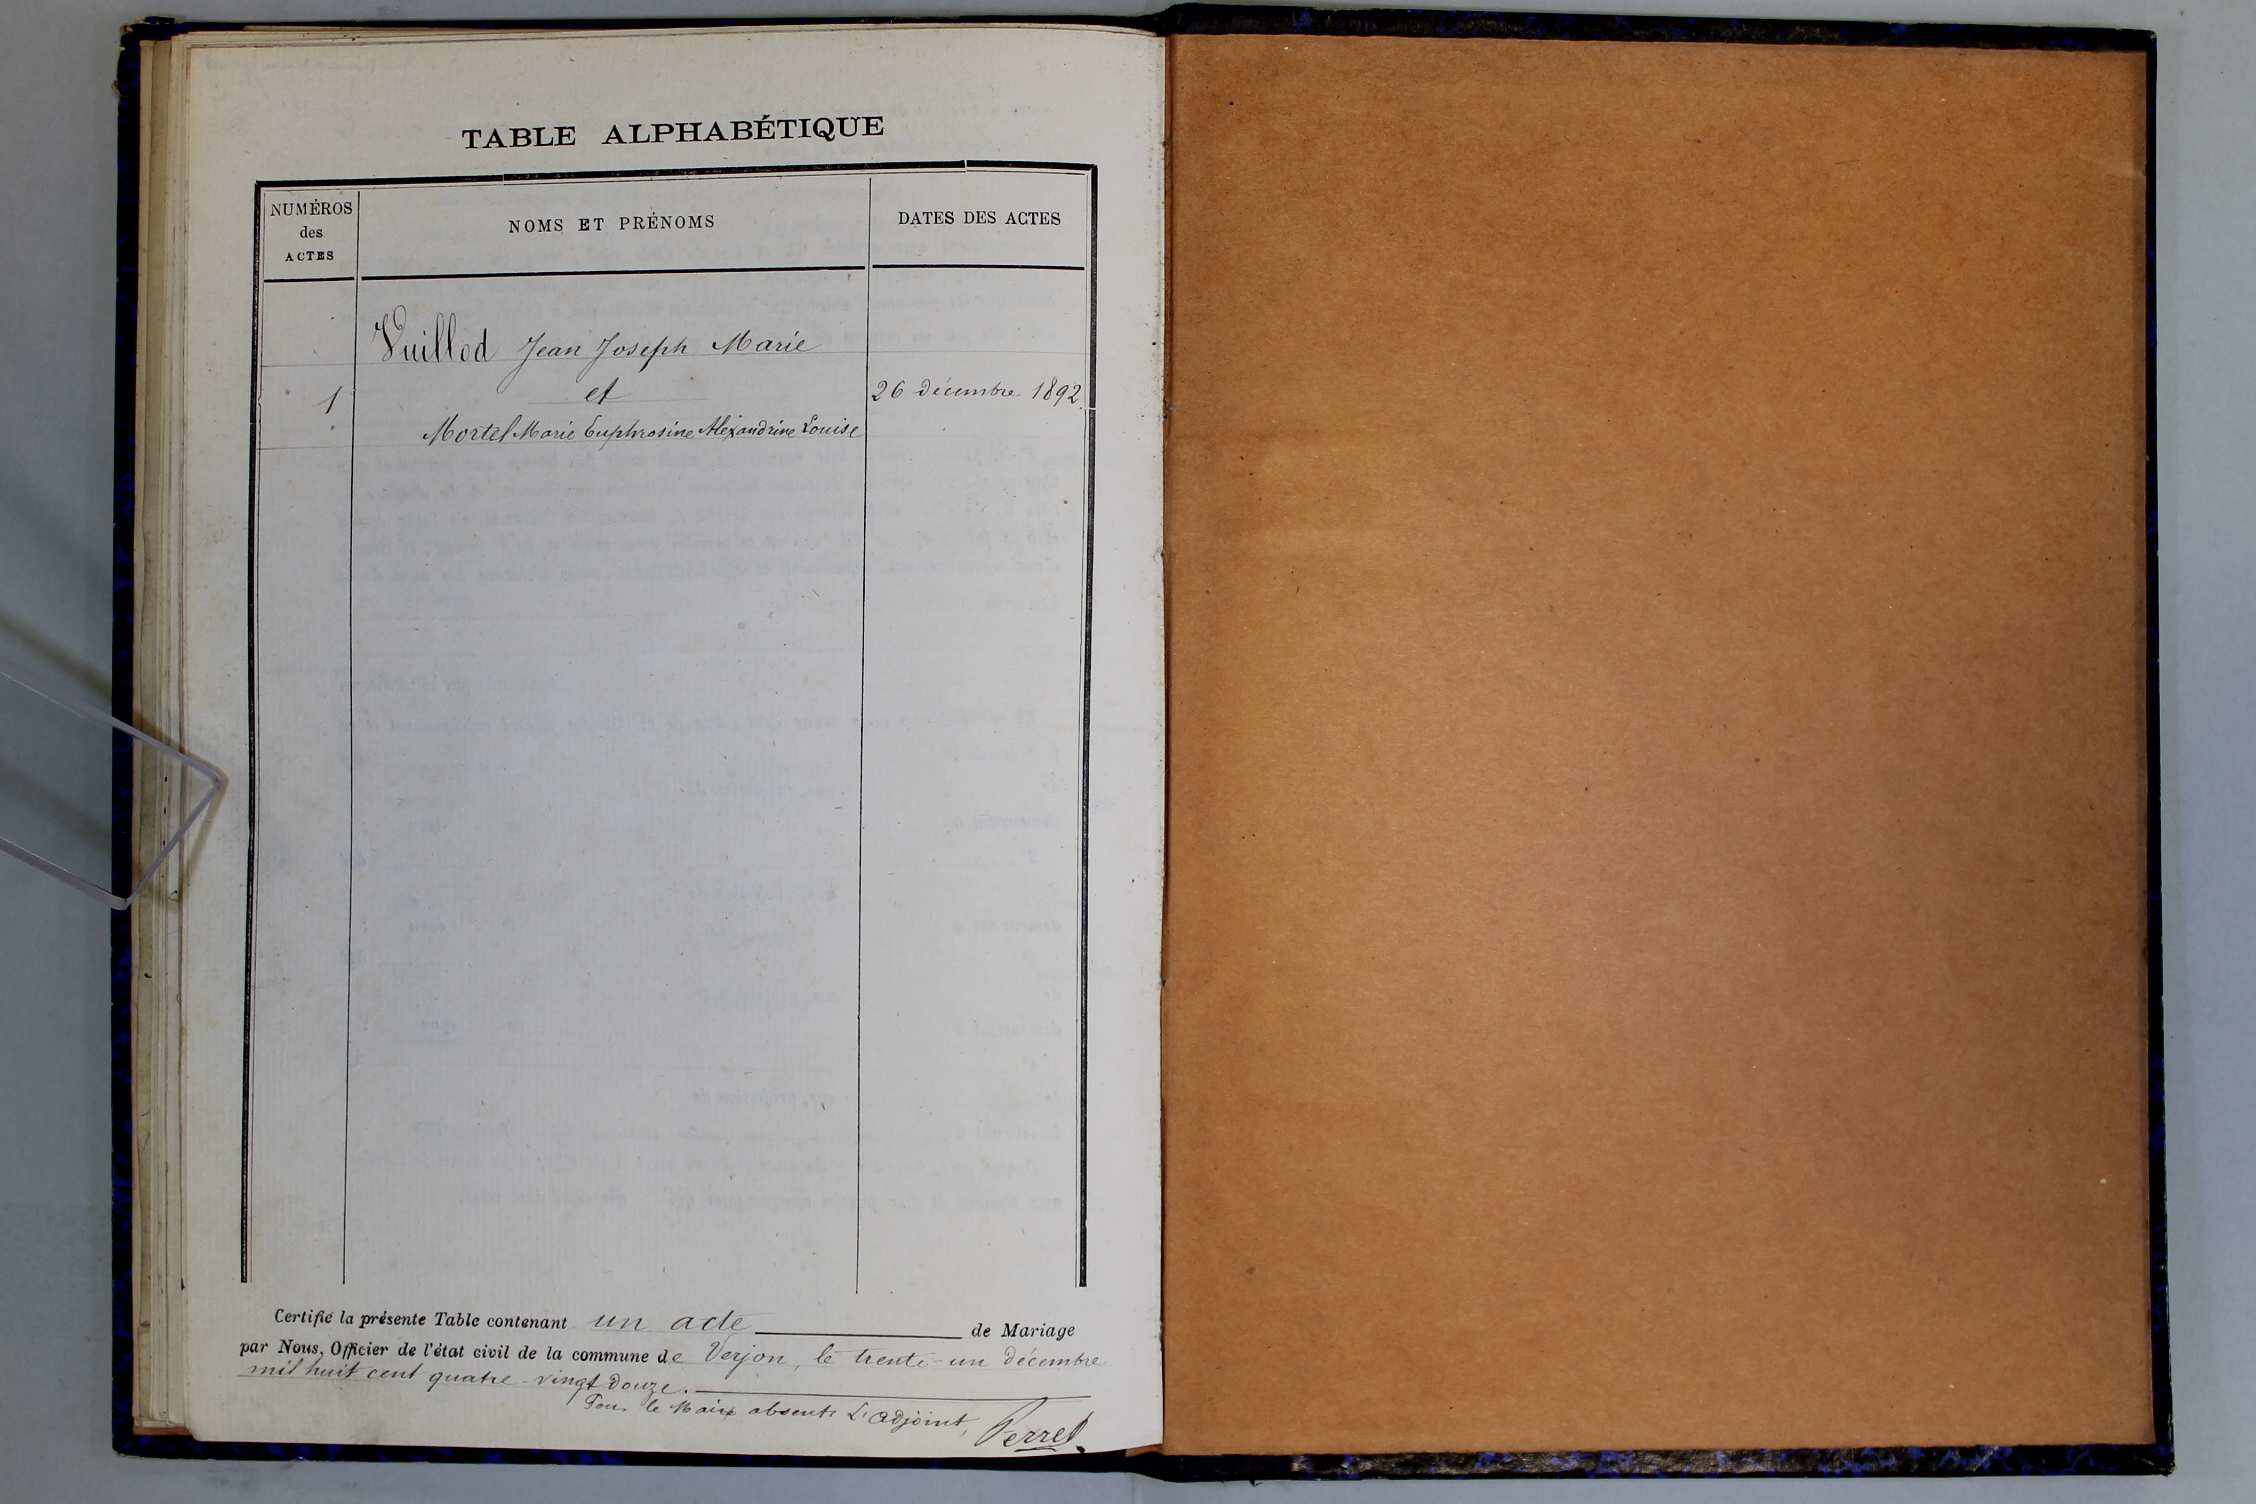 TABLE ALPHABÉTIQUE
NUMÉROS
des
ACTES
NOMS ET PRÉNOMS
DATES DES ACTES
Vuillod Jean Joseph Marie
1
et
26 décembre 1892.
Mortel Marie Euphrosine Alexandrine Louise
Certifié la présente Table contenant un acte de Mariage
par Nous, Officier de l'état civil de la commune de Verjon, le trente-un décembre
mil huit cent quatre-vingt douze.
Pour le Maire absent L'adjoint,
Perret